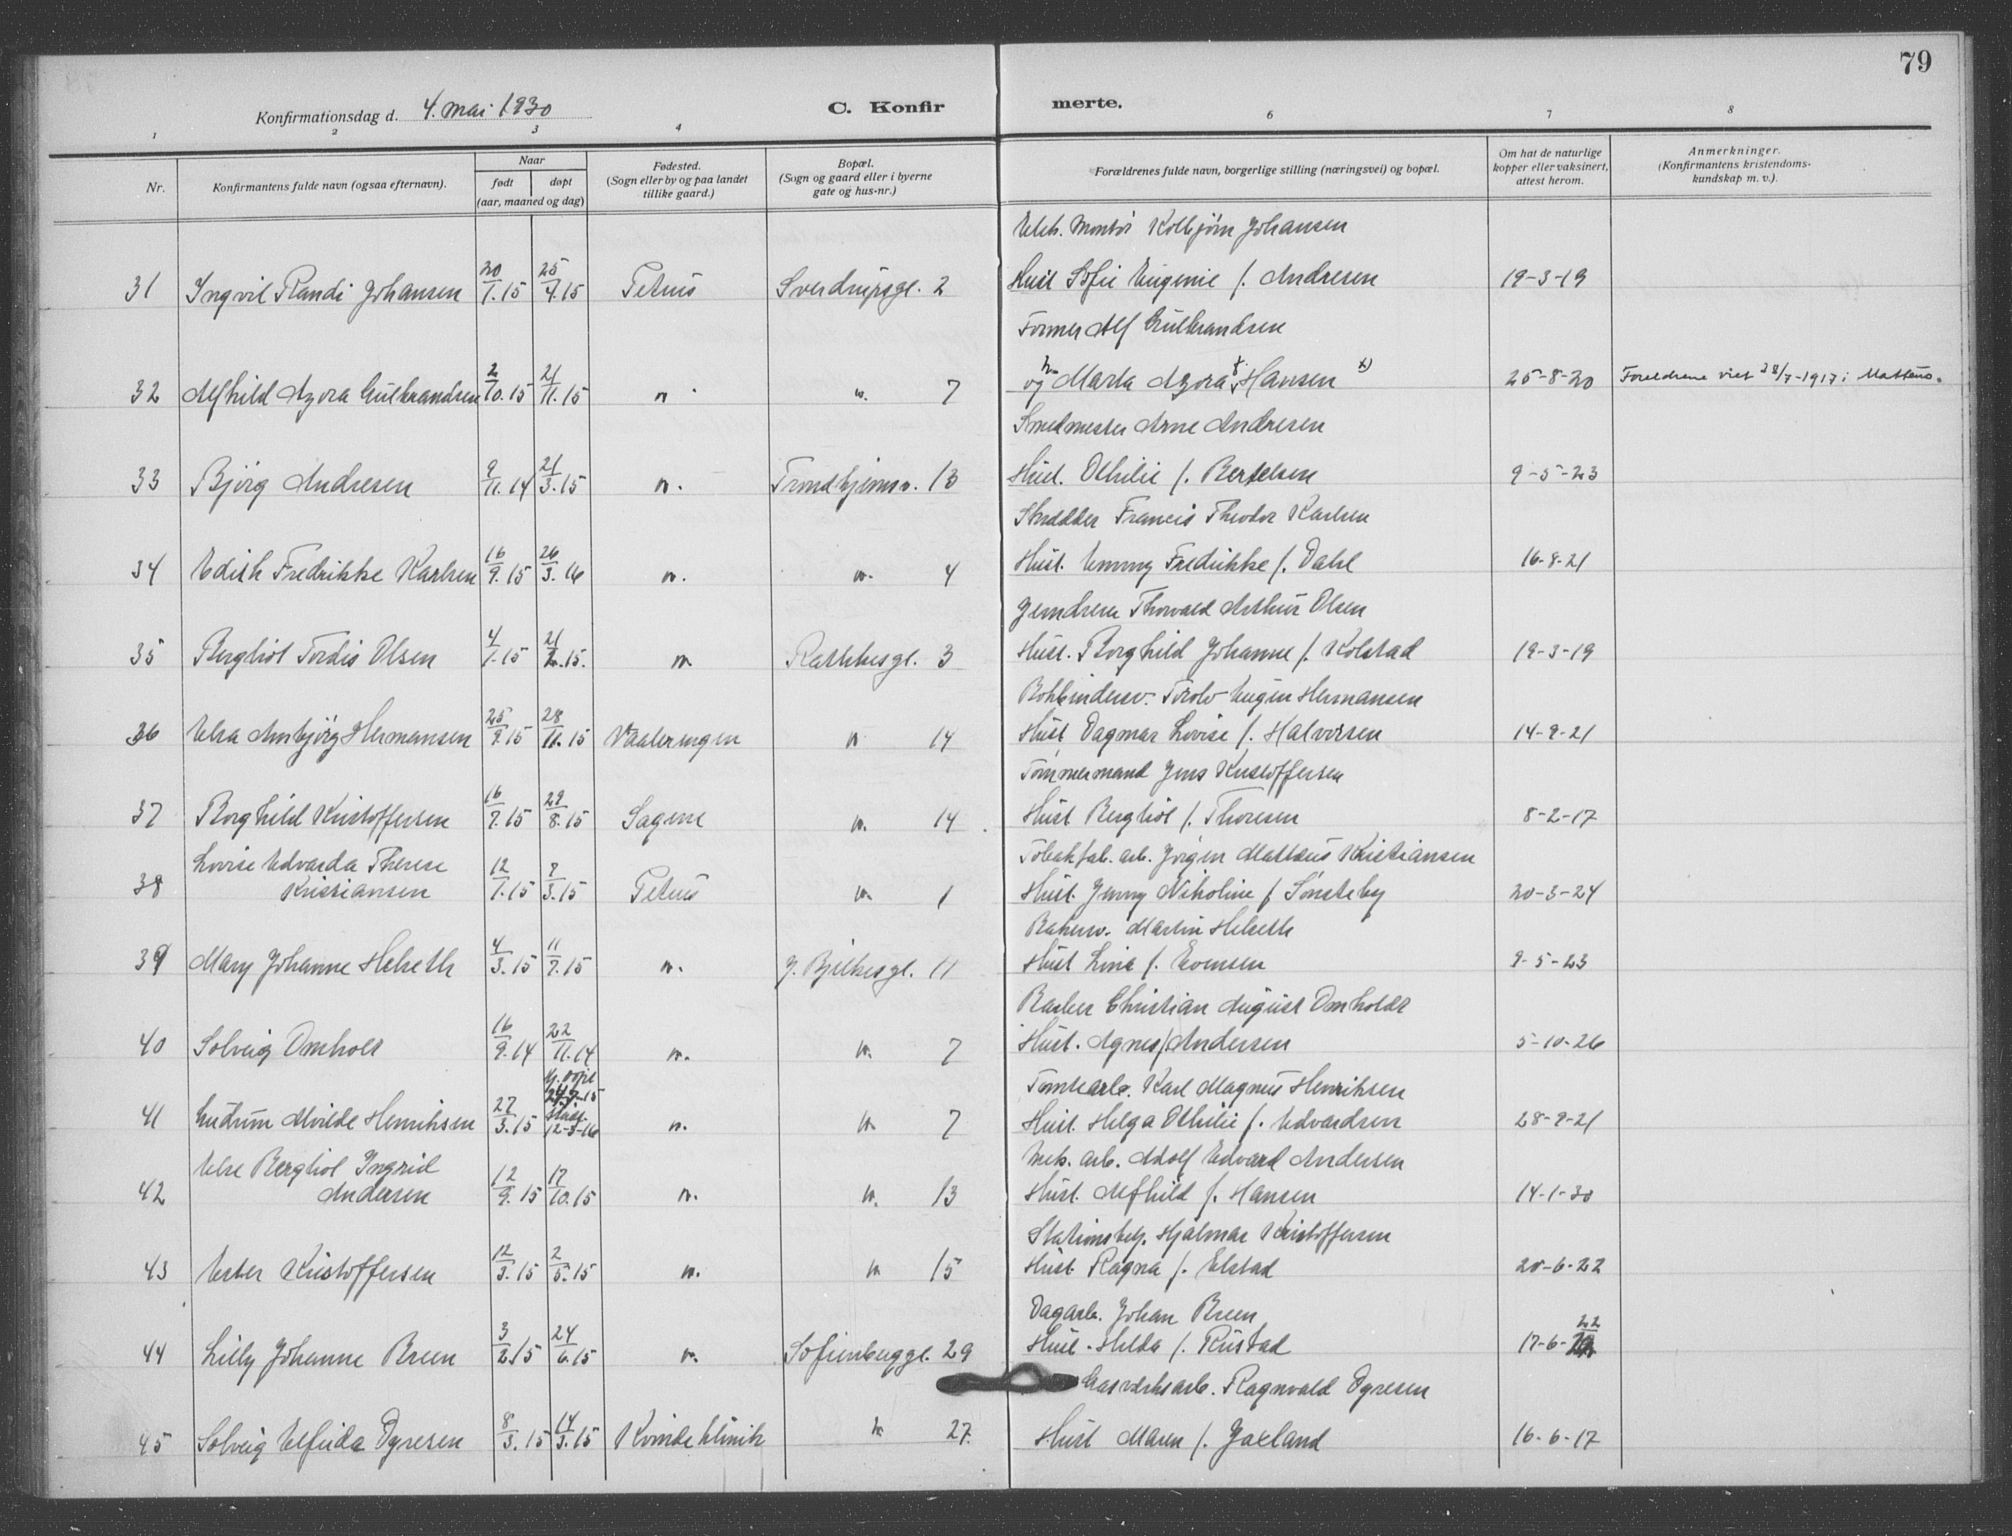 79
Konfirmationsdag d. 4. mai 1930
C. Konfir
merte.
1 2 3 4 6 7 8
Nr.
Konfirmantens fulde navn (ogsaa efternavn).
Naar
født
døpt
(aar, maaned og dag)
Fødested.
(Sogn eller by og paa landet
tillike gaard.)
Bopæl.
(Sogn og gaard eller i byerne
gate og hus-nr.)
Forældrenes fulde navn, borgerlige stilling (næringsvei) og bopæl.
Om hat de naturlige
kopper eller vaksinert,
attest herom.
Anmerkninger.
(Konfirmantens kristendoms-
kundskap m. v.).
Elek. Montør Kolbjørn Johansen
31 Ingvil Randi Johansen 20/1.15 25/4.15 Petrus Sverdrupsgt. 2 Hust. Sofie Eugenie f. Andresen 19-3-19
Former Alf Gulbrandsen
32 Alfhild Azora Gulbrandsen 2/10.15 21/11.15 " " 7 og Marta Azora Hansen x) 25-8-20 Foreldrene viet 28/7-1917 i Matteus.
Smedmester Arne Andresen
33 Bjørg Andresen 9/11.14 21/3.15 " Trondhjemsv. 13 Hust. Othilie f. Bertelsen 9-5-23
Skrædder Francis Theodor Karlsen
34 Edith Fredrikke Karlsen 16/9.15 26/3.16 " " 4 Hust. Emmy Fredrikke f. Dahl 16-8-21
Thorvald Arthur Olsen
35 Bergliot Tordis Olsen 4/1.15 21/2.15. " Rathkesgt. 3 Hust. Borghild Johanne f. Kolstad 19-3-19
Bokbindersv. Torolv Eugen Hermansen
36 Elsa Ansbjørg Hermansen 25/9.15 28/11.15 Vaalerengen " 14 Hust. Dagmar Lovise f. Halvorsen 14-9-21
Tømmermand Jens Kristoffersen
37 Borghild Kristoffersen 16/7.15 29/8.15 Sagene " 14 Hust Bergliot f. Thoresen 8-2-17
Lovise Edvarda Therese Tobakfab. arb. Jørgen Mattæus Kristiansen
38 Kristiansen 12/1.15 7/3.15 Petrus " 1 Hust. Jenny Nikoline f Sønsteby 20-3-24
Bakersv. Martin Helseth
39 Mary Johanne Helseth 4/3.15 11/7.15 " J. Bjelkesgt. 11 Hust Lina f. Evensen 9-5-23
Barber Christian August Omholdt
40 Solveig Omholt 16/9.14 22/11.14 " " 7 Hust. Agnes f. Andersen 5-10-26
Tomtearb. Karl Magnus Henriksen
41 Gudrun Alvilde Henriksen 27/3.15 hj. døpt 12-3-16 " " 7 Hust. Helga Othilie f. Edvardsen 28-9-21
Else Bergliot Ingrid Mek. arb. Adolf Edvard Andersen
42 Andersen 12/9.15 17/10.15 " " 13 Hust. Alfhild f. Hansen 14-1-30
Stationsbetj. Hjalmar Kristoffersen
43 Ester Kristoffersen 12/3.15 2/5.15 " " 15 Hust. Ragna f. Elstad 20-6-22
Dagarb. Johan Breen
44 Lilly Johanne Breen 3/2.15 24/6.15 " Sofienberggt. 29 Hust. Hilda f. Rustad 17-6-22
Gasværksarb. Ragnvald Dyresen
45 Solveig Elfrida Dyresen 8/3.15 14/3.15 Kvindeklinik " 27. Hust Maren f. Jaxland 16-6-17